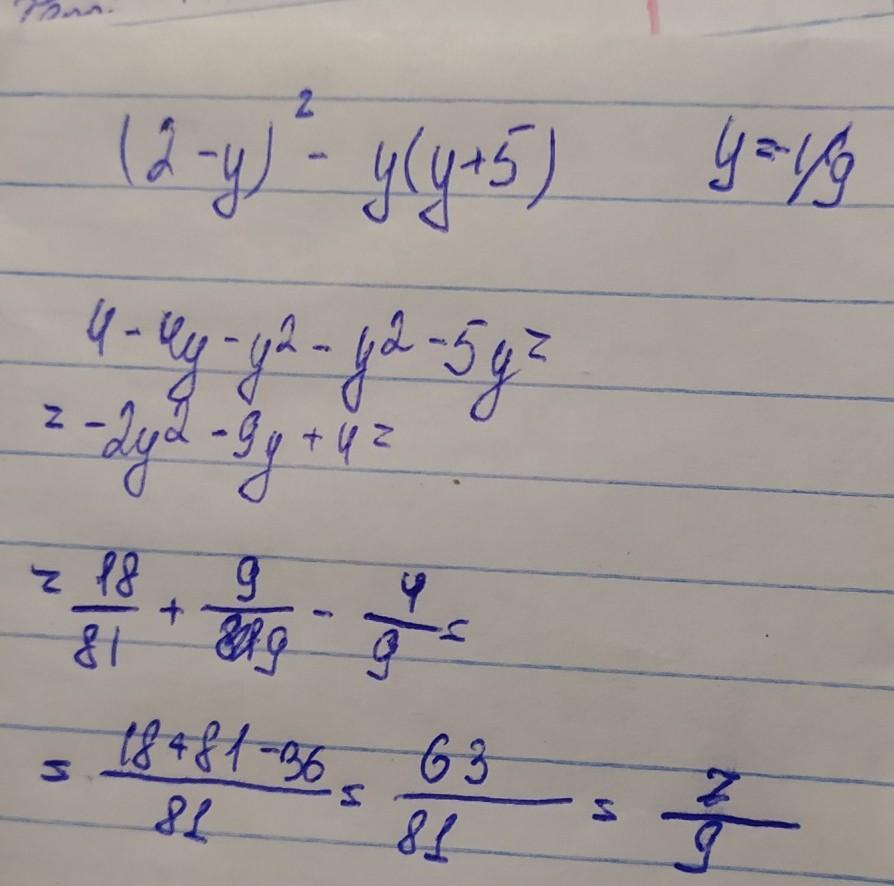 (2-y)² - y(y+5) y=-1/9
4-4y-y2-y2-5y=
=-2y2-9y+4=
= 18/81 + 9/9 - 4/9 =
= 18+81-36/81 = 63/81 = 7/9